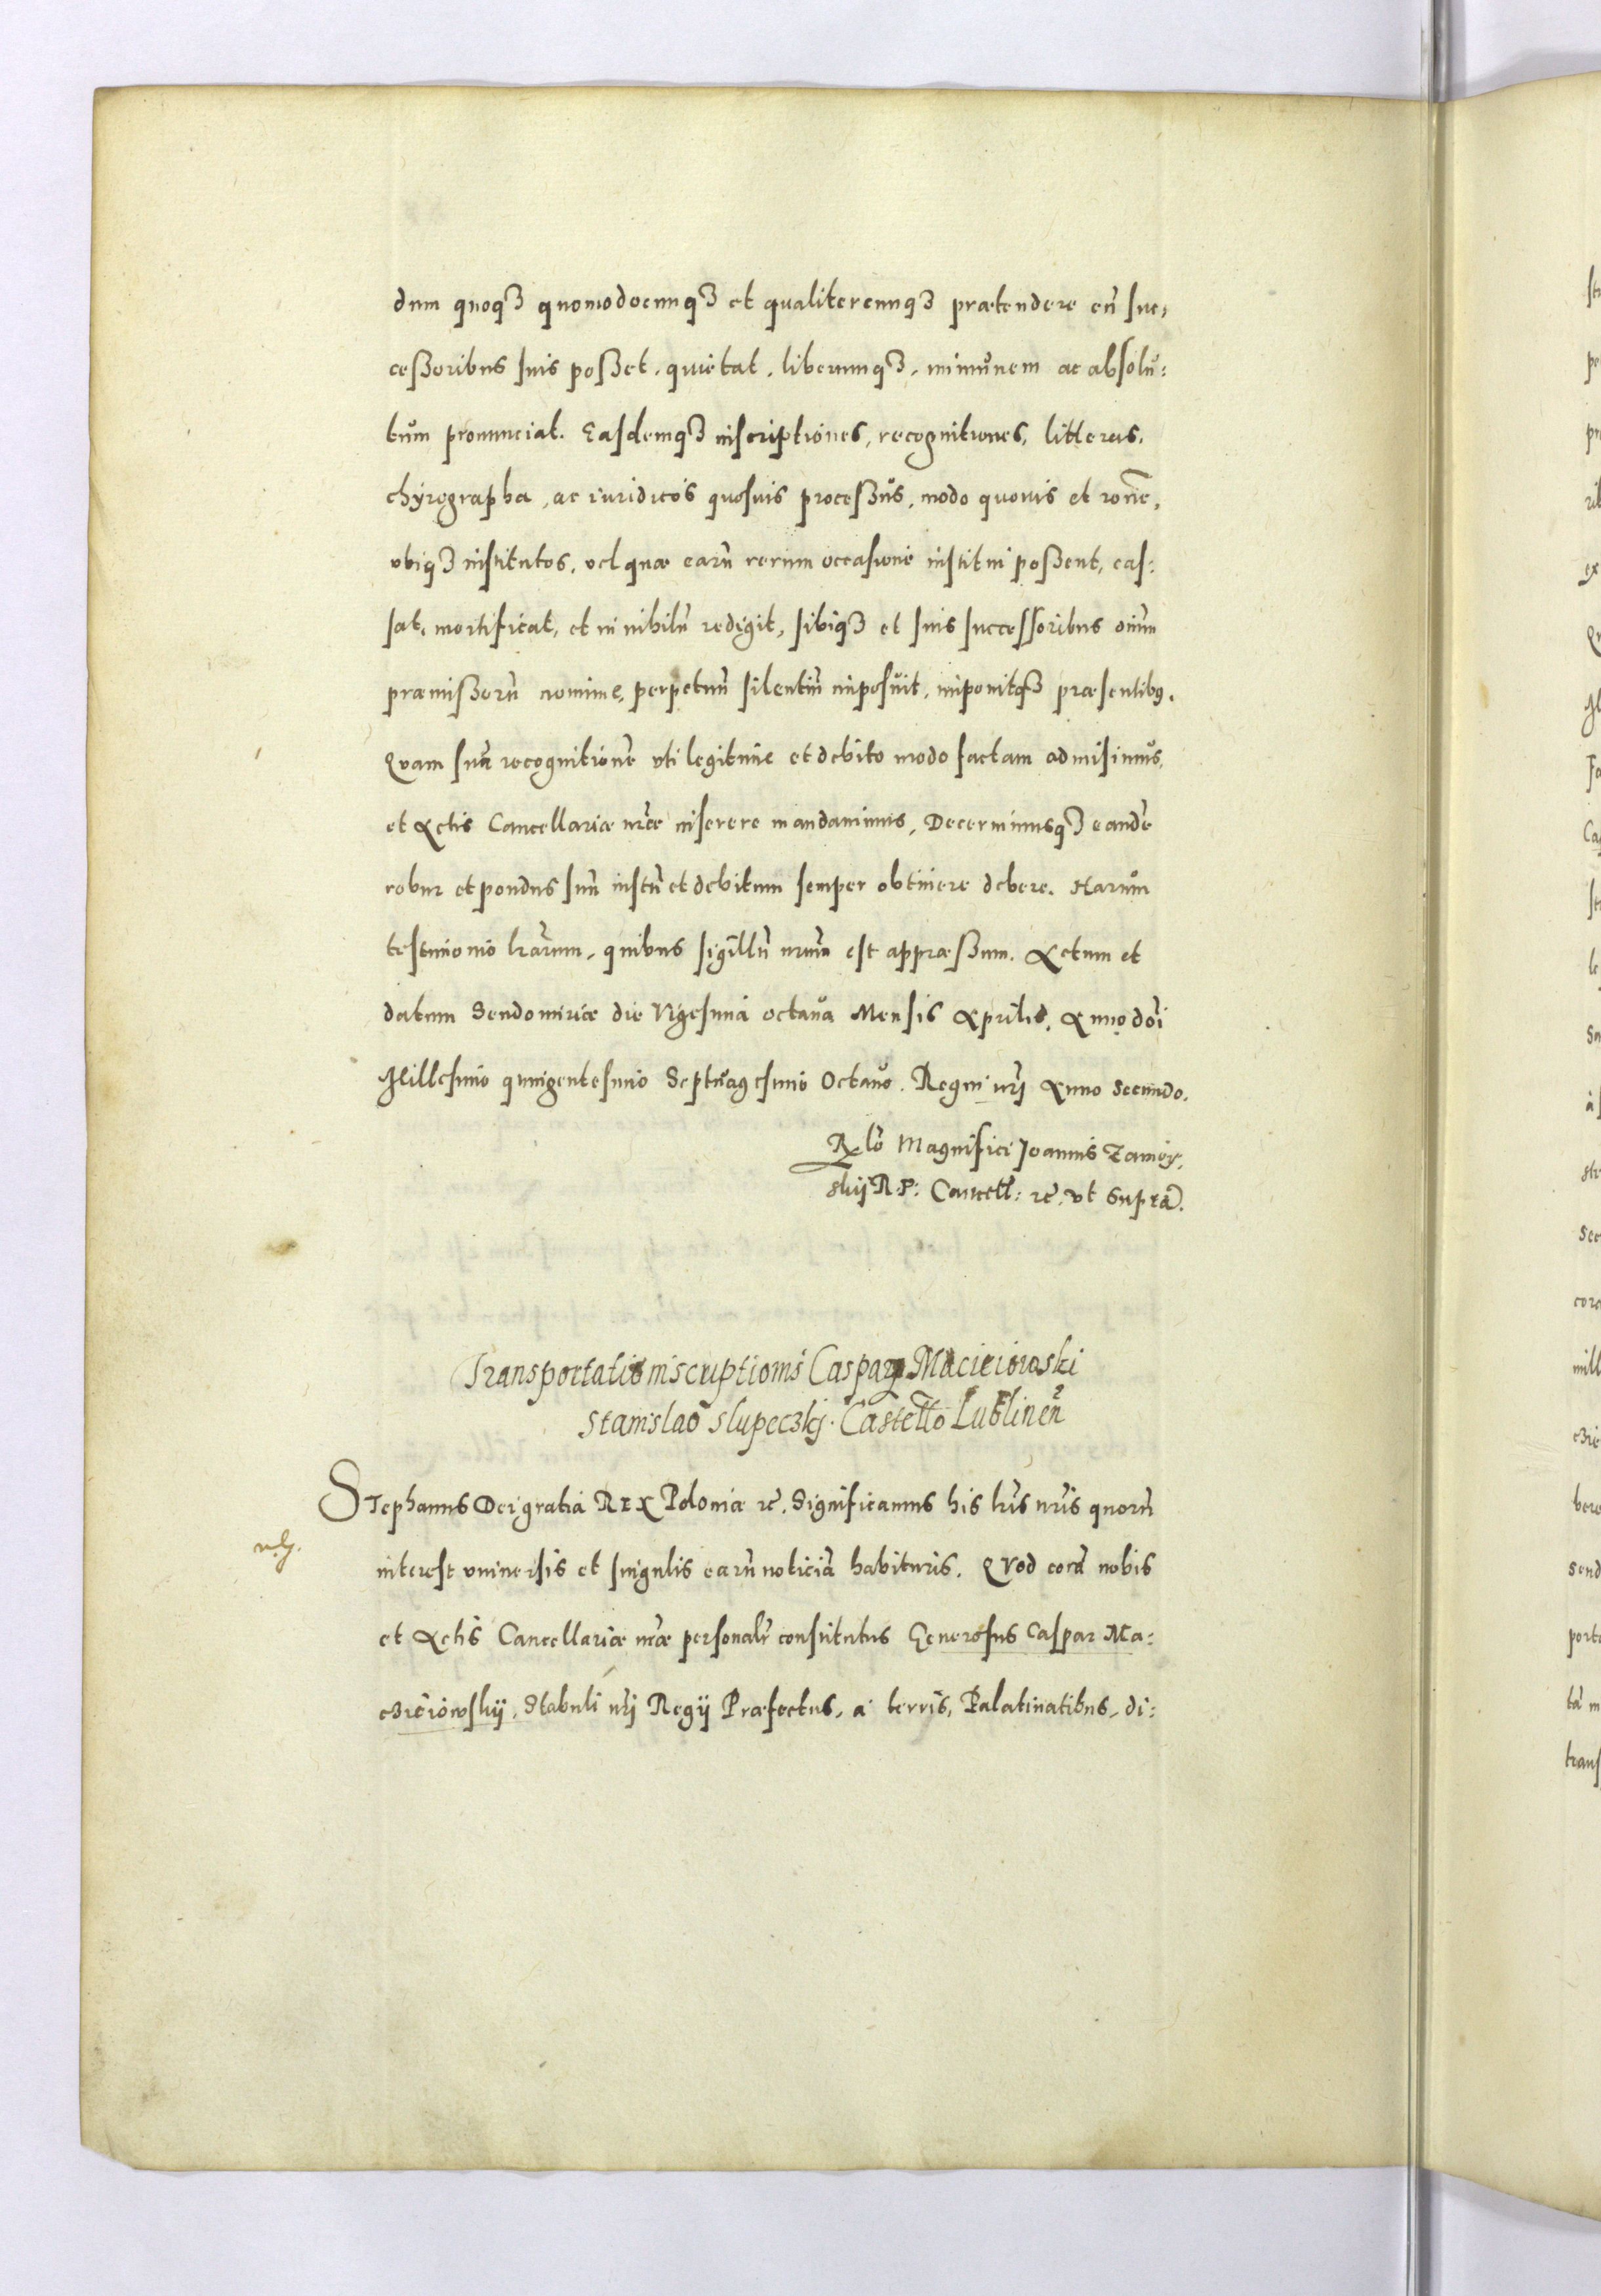 dum quoqȝ quomodocunqȝ et qualitercunqȝ prætendere cũ suc,
cessoribus suis posset, quietat, liberumqȝ, immunem ac absolu:
tum pronunciat. Easdemqȝ inscriptiones, recognitiones, litteras,
chÿrographa, ac iuridicos quosuis processus, modo quouis et rõne,
vbiqȝ institutos, vel quæ earũ rerum occasione institui possent, cas:
sat, mortificat, et in nihilũ redigit, sibiqȝ et suis successoribus oĩum
præmissorũ nomine, perpetuũ silentiũ imposuit, imponitqȝ præsentibꝰ.
Quam suã recognitionẽ vti legitime et debito modo factam admisimus,
et Actis Cancellariæ nr̃æ inserere mandauimus, Decernimusqȝ eandẽ
robur et pondus suũ iustũ et debitum semper obtinere debere. Harum
testimonio lr̃arum, quibus sigillũ nr̃um est appræssum. Actum et
datum Sendomiriæ die Vigesima octaua Mensis Aprilis, Anno dñi
Millesimo quingentesimo Septuagesimo Octauo. Regni nr̃j Anno Secundo.
Rẽlo Magnifici Joannis Zamoy,
skij R. P: Cancell: rc̃. vt supra.
Transportatio inscriptionis Caspar Macieiowski
Stanislao Slupeczkj. Castello Lublineñ
STephanus Dei gratia REX Poloniæ rc̃. Significamus his lr̃is nr̃is quorũ
interest vniuersis et singulis earũ noticiã habituris. QVod corã nobis
et Actis Cancellariæ nr̃æ personalr̃ constitutus Generosus Caspar Ma:
czieiowskij, Stabuli nr̃j Regij Præfectus, a terris, Palatinatibus, di: